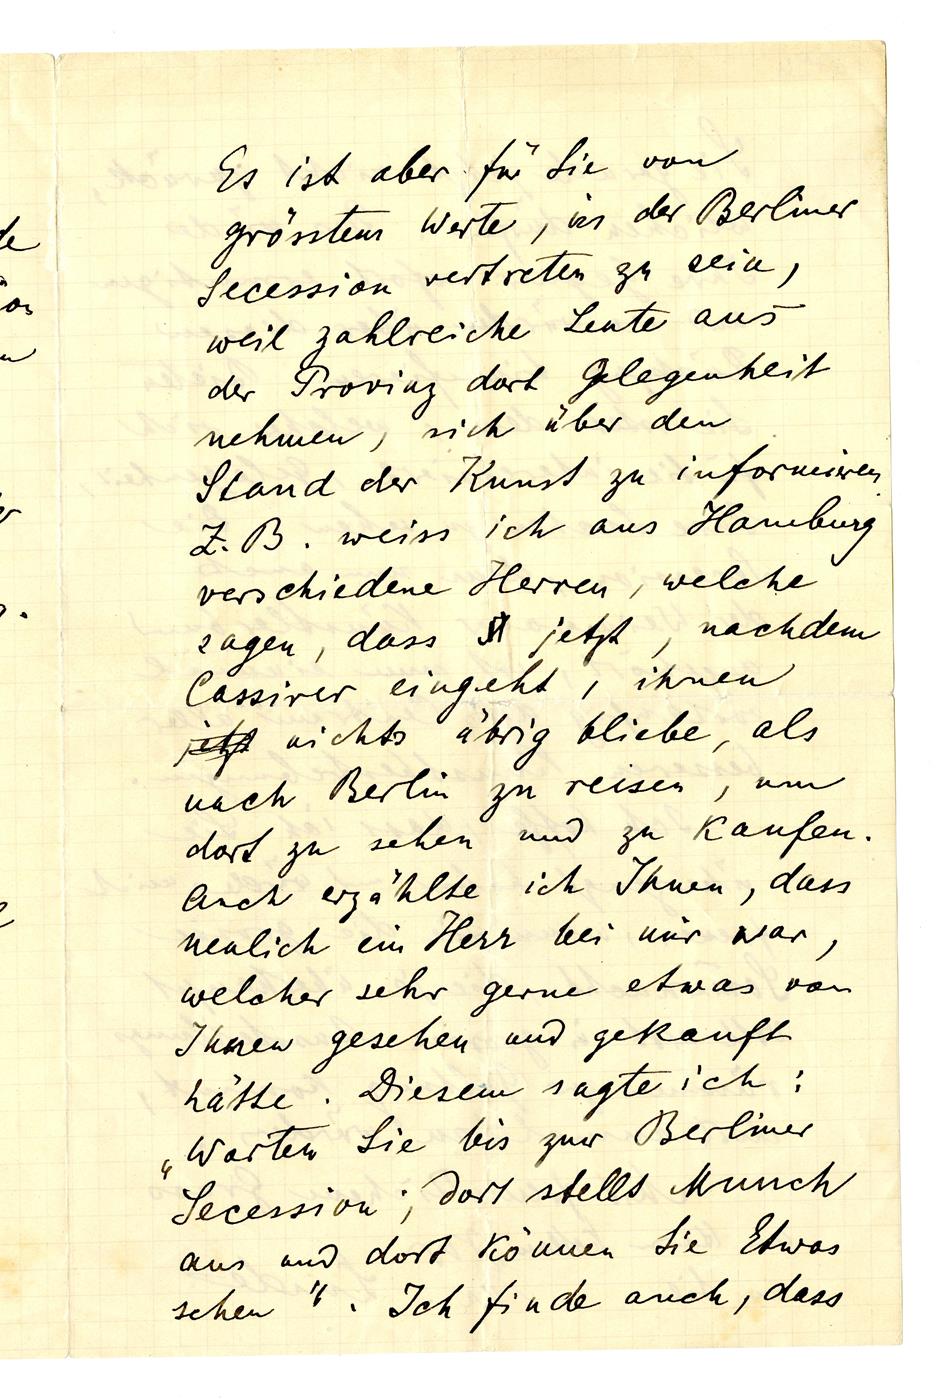 Es ist aber für Sie von
grösstem Werte, in der Berliner
Secession vertreten zu sein,
weil zahlreiche Leute aus
der Provinz dort Gelegenheit
nehmen, sich über den
Stand der Kunst zu informieren
Z. B. weiss ich aus Hamburg
verschiedene Herren, welche
sagen, dass jetzt, nachdem
Cassirer eingeht, ihnen
jetzt nichts übrig bliebe, als
nach Berlin zu reisen, um
dort zu sehen und zu kaufen.
Auch erzählte ich Ihnen, dass
neulich ein Herr bei mir war,
welcher sehr gerne etwas von
Ihnen gesehen und gekauft
hätte. Diesem sagte ich:
„Warten Sie bis zur Berliner
Secession; dort stellt Munch
aus und dort können Sie Etwas
sehen". Ich finde auch, dass